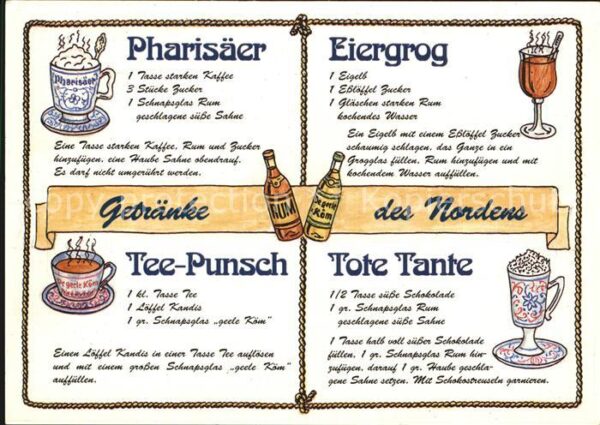 Pharisäer
1 Tasse starken Kaffee
3 Stücke Zucker
1 Schnapsglas Rum
geschlagene süße Sahne
Eine Tasse starken Kaffee, Rum und Zucker
hinzufügen, eine Haube Sahne obendrauf.
Es darf nicht umgerührt werden.
Pharisäer
Eiergrog
1 Eigelb
1 Eßlöffel Zucker
1 Gläschen starken Rum
kochendes Wasser
Ein Eigelb mit einem Eßlöffel Zucker
schaumig schlagen, das Ganze in ein
Grogglas füllen, Rum hinzufügen und mit
kochendem Wasser auffüllen.
Getränke des Nordens
RUM
De geele
Köm
Tee-Punsch
1 kl. Tasse Tee
1 Löffel Kandis
1 gr. Schnapsglas „geele Köm"
Einen Löffel Kandis in einer Tasse Tee auflösen
und mit einem großen Schnapsglas „geele Köm"
auffüllen.
De geele Köm
Tote Tante
1/2 Tasse süße Schokolade
1 gr. Schnapsglas Rum
geschlagene süße Sahne
1 Tasse halb voll süßer Schokolade
füllen, 1 gr. Schnapsglas Rum hin-
zufügen, darauf 1 gr. Haube geschla-
gene Sahne setzen. Mit Schokostreuseln garnieren.